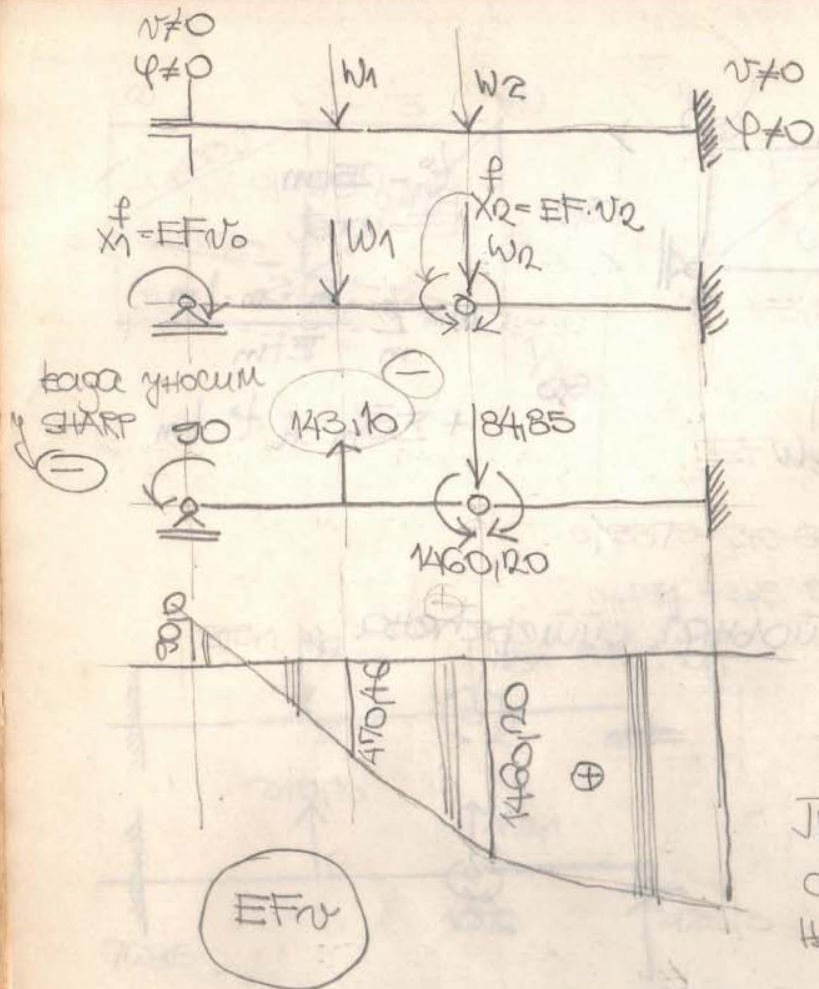 v≠0
φ≠0
W1
W2
v≠0
φ≠0
f
X1 = EFv₀
W1
f
X2 = EF·v2
W2
када уносим
у SHARP
−
90
143,10
−
84,85
1460,20
90,0
470,46
1460,20
+
EFv